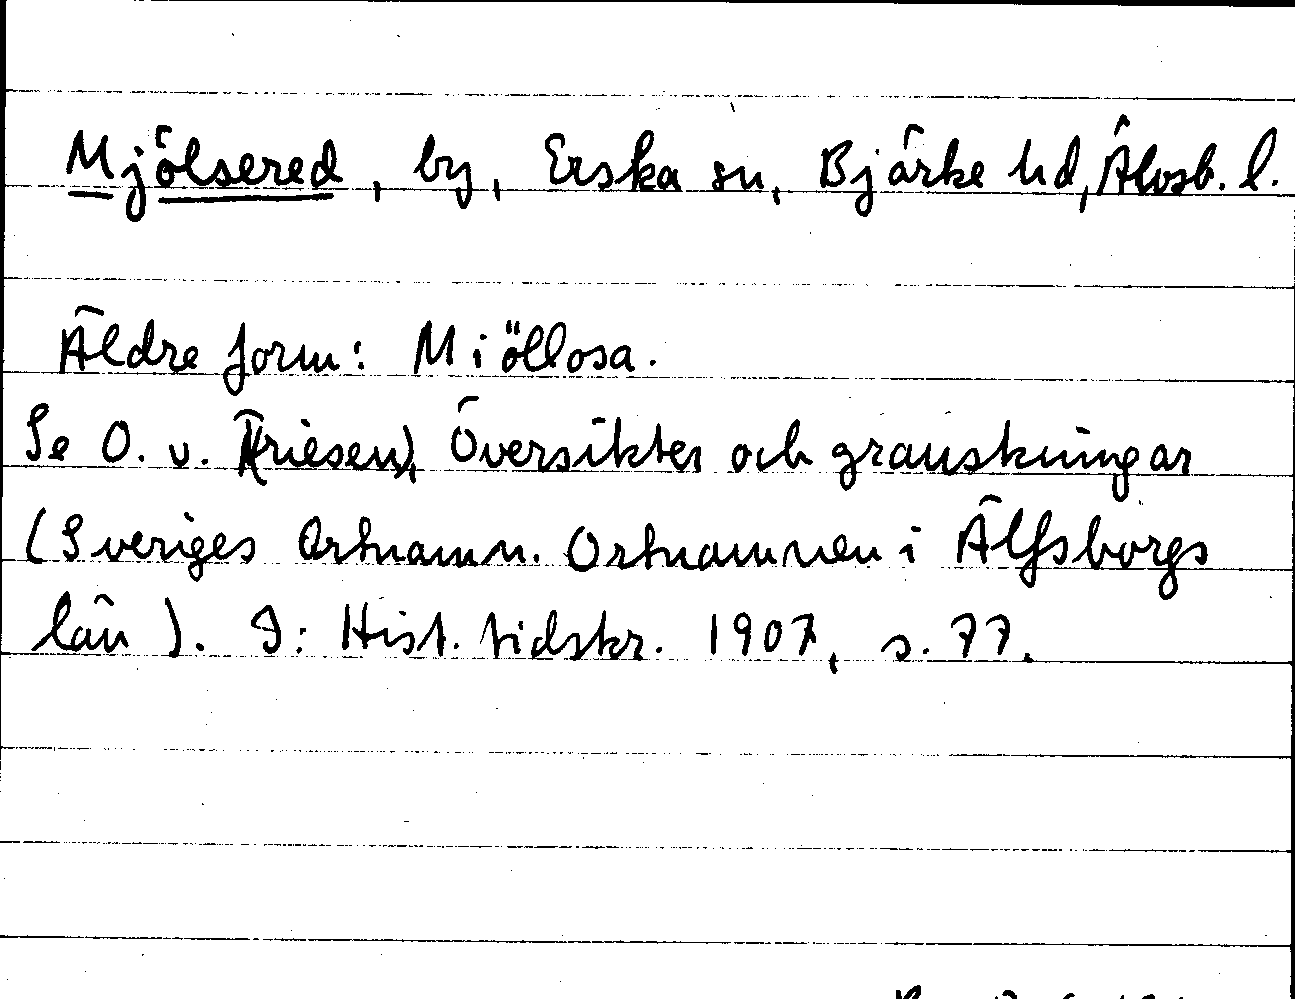 Mjölsered, by, Erska sn, Bjärke hd, Älvsb. l.
Äldre form: Miöllosa.
Se O. v. Friesen, Översikter och granskningar
(Sveriges Ortnamn. Ortnamnen i Älfsborgs
län). I: Hist. tidskr. 1907, s. 77.